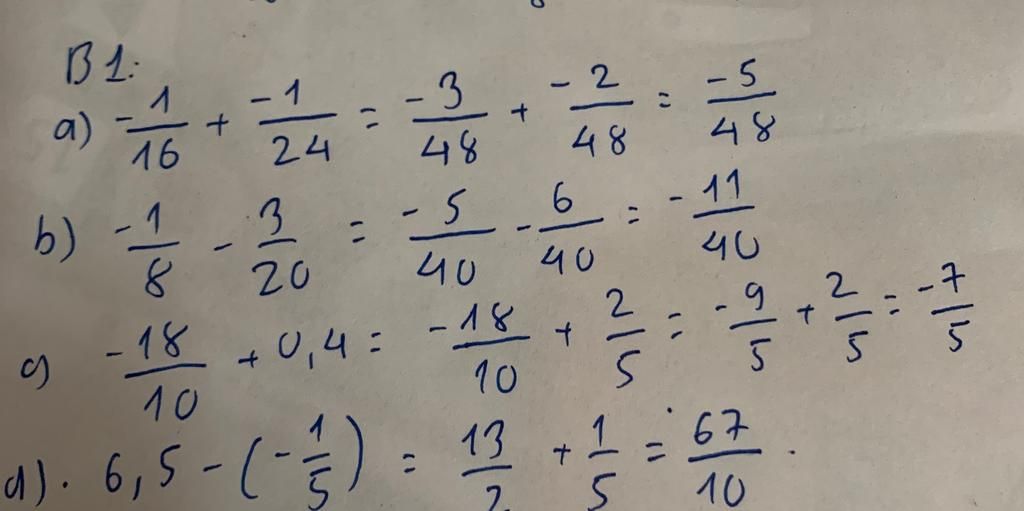 B1:
a) -1/16 + -1/24 = -3/48 + -2/48 = -5/48
b) -1/8 - 3/20 = -5/40 - 6/40 = -11/40
c) -18/10 + 0,4 = -18/10 + 2/5 = -9/5 + 2/5 = -7/5
d). 6,5 - (-1/5) = 13/2 + 1/5 = 67/10.